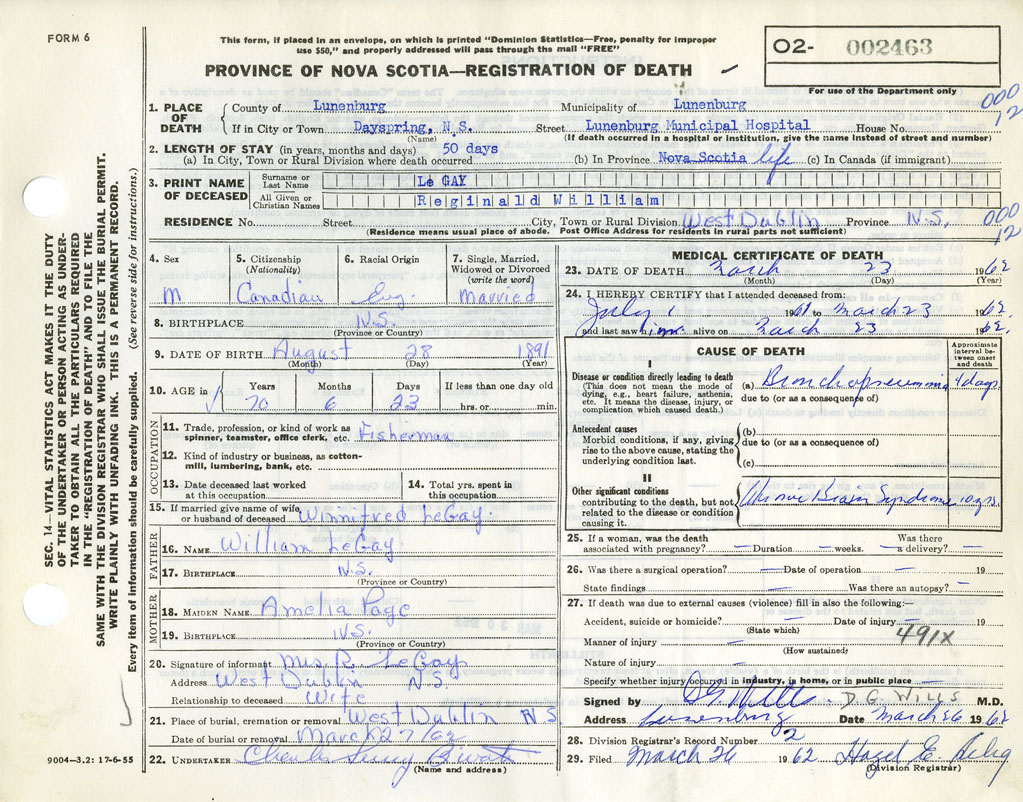 FORM 6
This form, if placed in an envelope, on which is printed "Dominion Statistics—Free, penalty for improper
use $50," and properly addressed will pass through the mail "FREE"
PROVINCE OF NOVA SCOTIA—REGISTRATION OF DEATH
O2- 002463
For use of the Department only
SEC. 14—VITAL STATISTICS ACT MAKES IT THE DUTY
OF THE UNDERTAKER OR PERSON ACTING AS UNDER-
TAKER TO OBTAIN ALL THE PARTICULARS REQUIRED
IN THE "REGISTRATION OF DEATH" AND TO FILE THE
SAME WITH THE DIVISION REGISTRAR WHO SHALL ISSUE THE BURIAL PERMIT.
WRITE PLAINLY WITH UNFADING INK. THIS IS A PERMANENT RECORD.
Every item of information should be carefully supplied. (See reverse side for instructions.)
1. PLACE OF DEATH
County of Lunenburg Municipality of Lunenburg 000 12
If in City or Town Dayspring, N.S. Street Lunenburg Municipal Hospital House No.
(Name) (If death occurred in a hospital or institution, give the name instead of street and number)
2. LENGTH OF STAY (in years, months and days) 50 days
(a) In City, Town or Rural Division where death occurred (b) In Province Nova Scotia life (c) In Canada (if immigrant)
3. PRINT NAME OF DECEASED
Surname or Last Name Le GAY
All Given or Christian Names Reginald William
RESIDENCE No. Street City, Town or Rural Division West Dublin Province N.S. 000 12
(Residence means usual place of abode. Post Office Address for residents in rural parts not sufficient)
4. Sex M
5. Citizenship (Nationality) Canadian
6. Racial Origin Eng.
7. Single, Married, Widowed or Divorced (write the word) Married
8. BIRTHPLACE N.S.
(Province or Country)
9. DATE OF BIRTH August 28 1891
(Month) (Day) (Year)
10. AGE in Years Months Days If less than one day old
70 6 23 hrs. or min.
OCCUPATION
11. Trade, profession, or kind of work as spinner, teamster, office clerk, etc. Fisherman
12. Kind of industry or business, as cotton-mill, lumbering, bank, etc.
13. Date deceased last worked at this occupation
14. Total yrs. spent in this occupation
15. If married give name of wife or husband of deceased Winnifred LeGay.
FATHER
16. NAME William LeGay
17. BIRTHPLACE N.S.
(Province or Country)
MOTHER
18. MAIDEN NAME Amelia Page
19. BIRTHPLACE N.S.
(Province or Country)
20. Signature of informant Mrs. R. LeGay
Address West Dublin N.S.
Relationship to deceased Wife
21. Place of burial, cremation or removal West Dublin N S
Date of burial or removal March 27/62
22. UNDERTAKER Charles
(Name and address)
9004—3.2: 17-6-55
MEDICAL CERTIFICATE OF DEATH
23. DATE OF DEATH March 23 1962
(Month) (Day) (Year)
24. I HEREBY CERTIFY that I attended deceased from:
July 1 1961 to March 23 1962.
and last saw him alive on March 23 1962.
CAUSE OF DEATH
Approximate interval between onset and death
I
Disease or condition directly leading to death
(This does not mean the mode of dying, e.g., heart failure, asthenia, etc. It means the disease, injury, or complication which caused death.)
(a) Bronchopneumonia 4 days
due to (or as a consequence of)
Antecedent causes
Morbid conditions, if any, giving rise to the above cause, stating the underlying condition last.
(b)
due to (or as a consequence of)
(c)
II
Other significant conditions
contributing to the death, but not related to the disease or condition causing it.
Chronic Brain Syndrome 10 yrs.
25. If a woman, was the death associated with pregnancy? — Duration — weeks. Was there a delivery? —
26. Was there a surgical operation? — Date of operation — 19
State findings Was there an autopsy? —
27. If death was due to external causes (violence) fill in also the following:—
Accident, suicide or homicide? — Date of injury — 19
(State which) 491X
Manner of injury —
(How sustained)
Nature of injury —
Specify whether injury occurred in industry, in home, or in public place —
Signed by D G Wills D. G. WILLS M.D.
Address Lunenburg Date March 26 1962
28. Division Registrar's Record Number 2
29. Filed March 26 1962 Hazel E.
(Division Registrar)